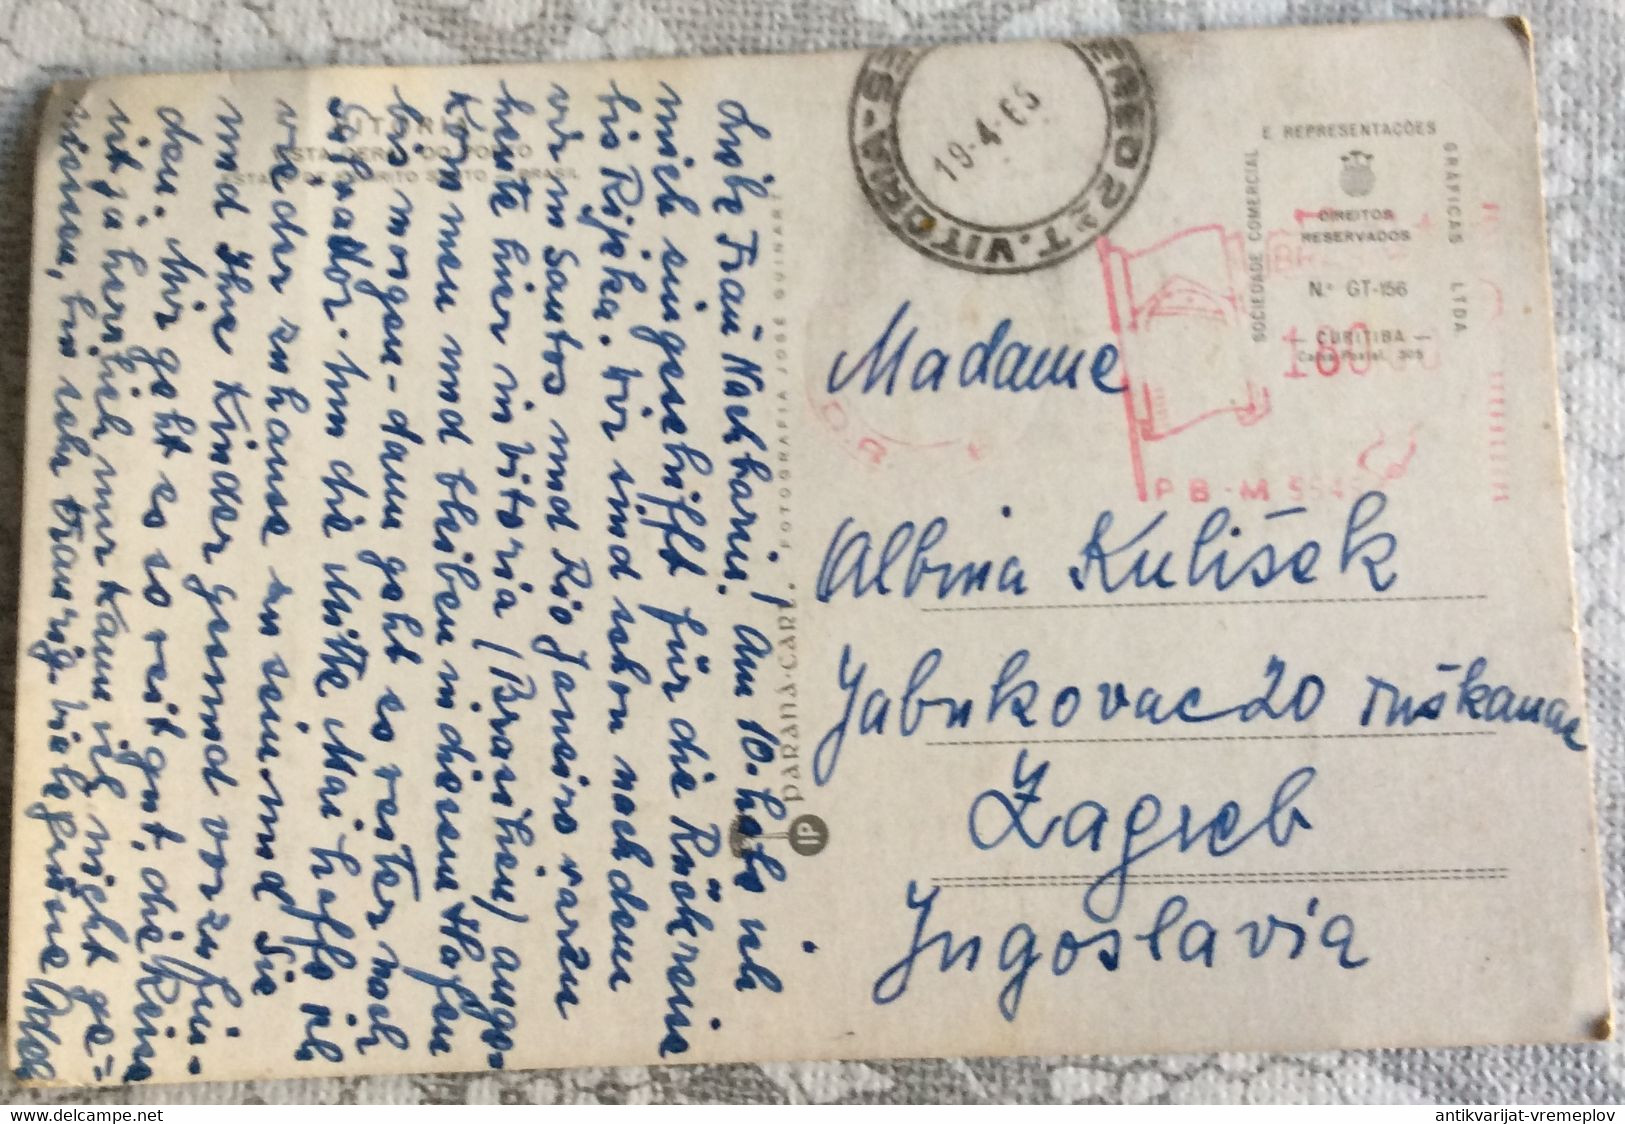 Liebe Frau Nachbarin! Am 10. habe ich
mich eingeschifft für die Rückreise
bis Rijeka. Wir sind schon nachdem
wir in Santos und Rio Janeiro waren
heute hier in Vitoria (Brasilien) ange-
kommen und bleiben in diesem Hafen
bis morgen - dann geht es weiter nach
Salvador. Um die Mitte Mai hoffe ich
wieder zuhause zu sein und Sie
und Ihre Kinder gesund vorzufin-
den. Mir geht es so weit gut, die Reise
ist ja herrlich nur kann ich nicht ge=
niesen, bin sehr traurig. Viele Grüsse
VITORIA
VISTA GERAL DO PORTO
ESTADO DE ESPIRITO SANTO - BRASIL
PARANÁ-CART.
FOTOGRAFIA JOSÉ
IP
T. VITORIA-ES-
19-4-65
E REPRESENTAÇÕES
SOCIEDADE COMERCIAL
GRÁFICAS LTDA
DIREITOS
RESERVADOS
N.º GT-156
— CURITIBA —
Caixa Postal, 305
D.R.
PB-M
Madame
Albina Kulišek
Jabukovac 20 Tuškanac
Zagreb
Jugoslavia
antikvarijat-vremeplov